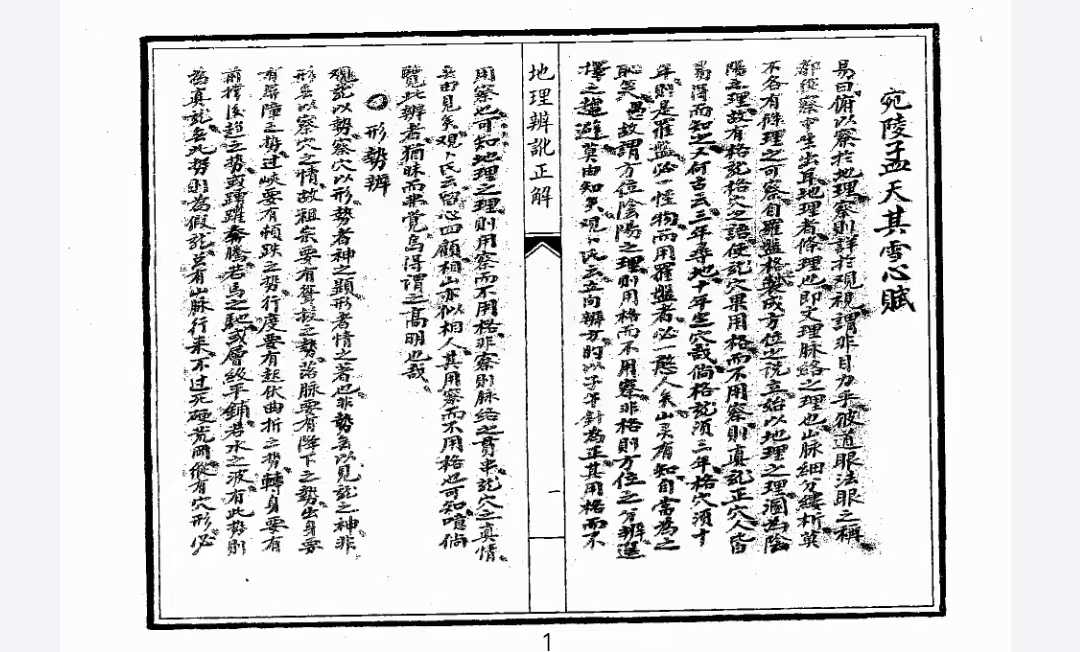 宛陵子孟天其雪心賦
易曰俯以察於地理察則詳於視初謂非目力乎彼道眼法眼之稱
都從察中生出耳地理者條理也即文理脉絡之理也山脉細分縷析莫
不各有條理之可察自羅盤格製成方位之說立始以地理之理溷為陰
陽之理故有格龍格穴之語使龍穴果用格而不用察則真龍正穴人皆
得而知之又何古云三年尋地十年定穴哉倘格龍須三年格穴須十
年則是羅盤必一怪物而用羅盤者必一愚人矣山灵有知自當為之
恥笑愚故謂方位陰陽之理則用格而不用察非格則方位之分辨選
擇之趨避莫由知矣观卜氏云立向辨方的以子午針為正其用格而不
地理辨訛正解
一
用察也可知地理之理則用察而不用格非察則脉絡之貫串龍穴之真情
無由見矣观卜氏云留心四顧相山亦似相人其用察而不用格也可知噫倘
覽此辨者猶昧而非覺烏得謂之高明也哉
形勢辨
观龍以勢察穴以形勢者神之顯形者情之著也非勢無以見龍之神非
形無以察穴之情故祖宗要有聳拔之勢落脉要有降下之勢出身要
有屏障之勢过峽要有頓跌之勢行度要有起伏曲折之勢轉身要有
前撐後趕之勢或踴躍奔騰若馬之馳或層級平鋪若水之波有此勢則
為真龍無此勢則為假龍豈有山脉行來不过死硬荒 縱有穴形必
1